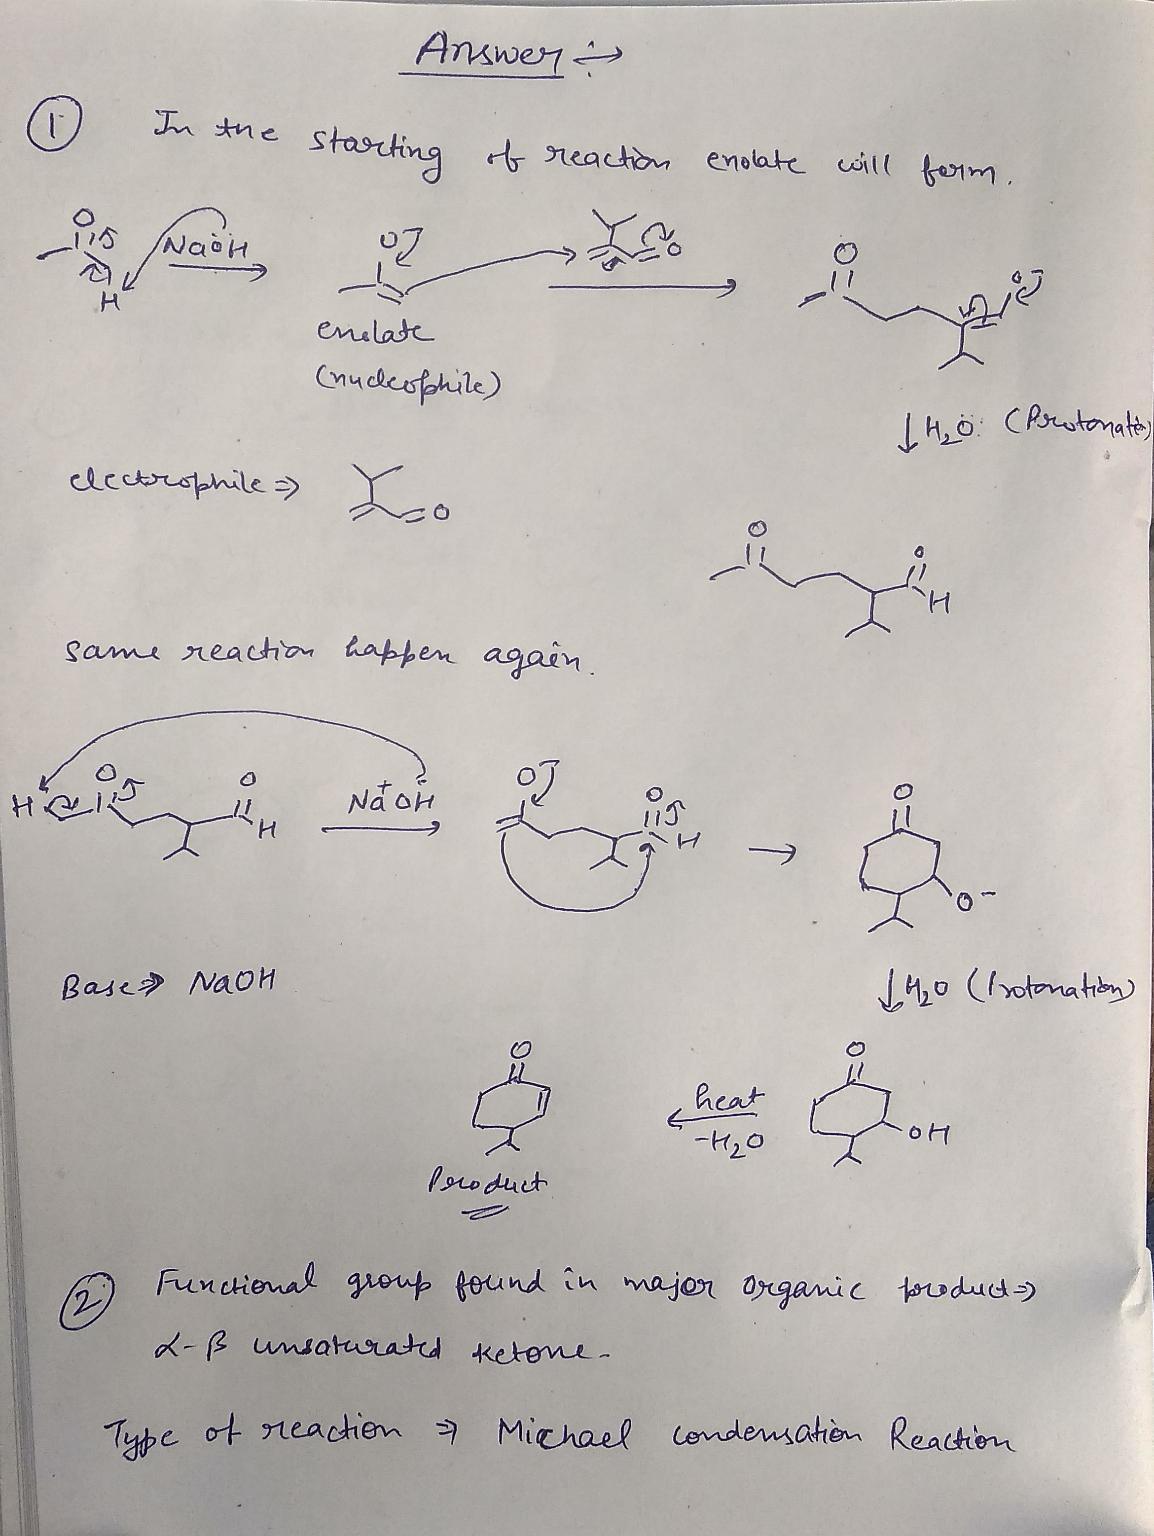 Answer :→
① In the starting of reaction enolate will form.
O
NaöH
H
O
O
O
O
enolate
(nucleophile)
↓ H₂Ö: (Protonation)
electrophile ⇒
O
O
O
H
same reaction happen again.
H
O
O
H
Na⁺ÖH
O
O
H
O
O⁻
Base ⇒ NaOH
↓ H₂O (Protonation)
O
heat
-H₂O
O
OH
Product
② Functional group found in major organic product ⇒
α-β unsaturated ketone.
Type of reaction ⇒ Michael condensation Reaction